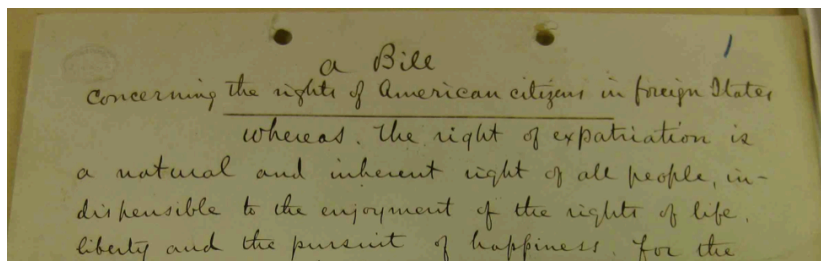 1
a Bill
concerning the rights of American citizens in foreign States
whereas, the right of expatriation is
a natural and inherent right of all people, in-
dispensible to the enjoyment of the rights of life,
liberty and the pursuit of happiness. for the